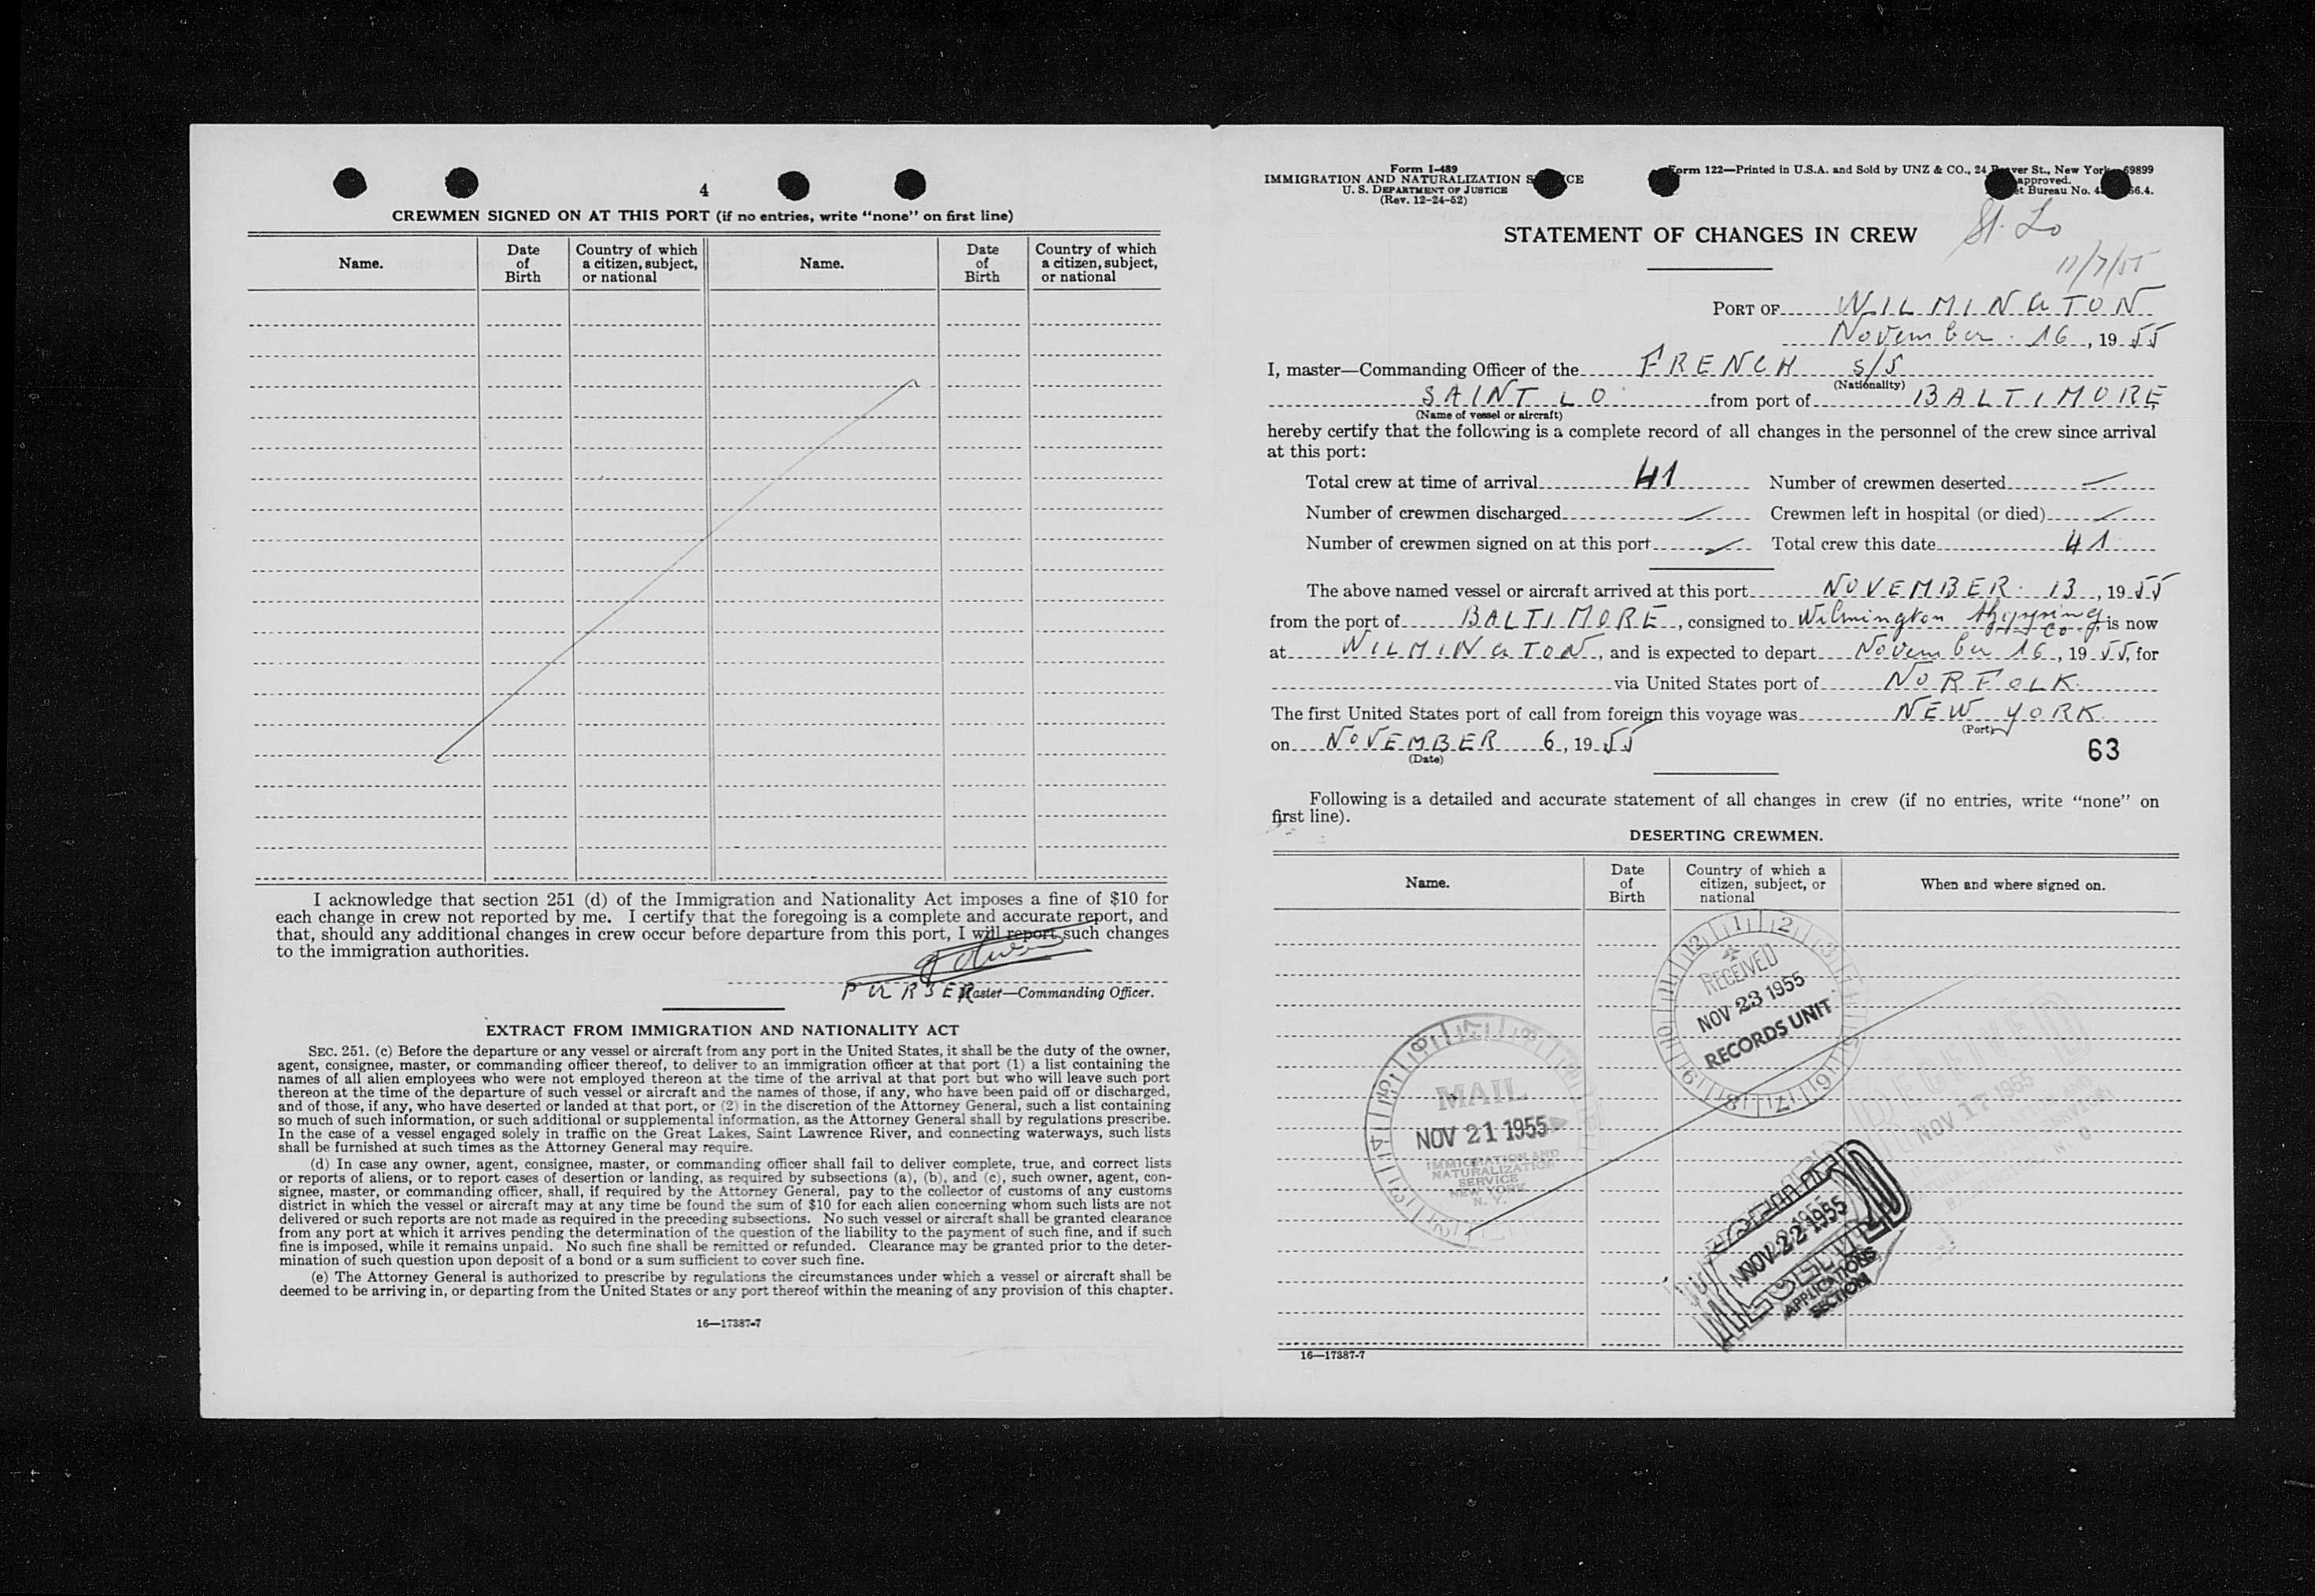 4
CREWMEN SIGNED ON AT THIS PORT (if no entries, write "none" on first line)
Name.
Date of Birth
Country of which a citizen, subject, or national
Name.
Date of Birth
Country of which a citizen, subject, or national
I acknowledge that section 251 (d) of the Immigration and Nationality Act imposes a fine of $10 for
each change in crew not reported by me. I certify that the foregoing is a complete and accurate report, and
that, should any additional changes in crew occur before departure from this port, I will report such changes
to the immigration authorities.
PURSER Master—Commanding Officer.
EXTRACT FROM IMMIGRATION AND NATIONALITY ACT
SEC. 251. (c) Before the departure or any vessel or aircraft from any port in the United States, it shall be the duty of the owner,
agent, consignee, master, or commanding officer thereof, to deliver to an immigration officer at that port (1) a list containing the
names of all alien employees who were not employed thereon at the time of the arrival at that port but who will leave such port
thereon at the time of the departure of such vessel or aircraft and the names of those, if any, who have been paid off or discharged,
and of those, if any, who have deserted or landed at that port, or (2) in the discretion of the Attorney General, such a list containing
so much of such information, or such additional or supplemental information, as the Attorney General shall by regulations prescribe.
In the case of a vessel engaged solely in traffic on the Great Lakes, Saint Lawrence River, and connecting waterways, such lists
shall be furnished at such times as the Attorney General may require.
(d) In case any owner, agent, consignee, master, or commanding officer shall fail to deliver complete, true, and correct lists
or reports of aliens, or to report cases of desertion or landing, as required by subsections (a), (b), and (c), such owner, agent, con-
signee, master, or commanding officer, shall, if required by the Attorney General, pay to the collector of customs of any customs
district in which the vessel or aircraft may at any time be found the sum of $10 for each alien concerning whom such lists are not
delivered or such reports are not made as required in the preceding subsections. No such vessel or aircraft shall be granted clearance
from any port at which it arrives pending the determination of the question of the liability to the payment of such fine, and if such
fine is imposed, while it remains unpaid. No such fine shall be remitted or refunded. Clearance may be granted prior to the deter-
mination of such question upon deposit of a bond or a sum sufficient to cover such fine.
(e) The Attorney General is authorized to prescribe by regulations the circumstances under which a vessel or aircraft shall be
deemed to be arriving in, or departing from the United States or any port thereof within the meaning of any provision of this chapter.
16—17387-7
Form I-489
IMMIGRATION AND NATURALIZATION S CE
U. S. DEPARTMENT OF JUSTICE
(Rev. 12-24-52)
Form 122—Printed in U.S.A. and Sold by UNZ & CO., 24 ver St., New York 69899
approved.
et Bureau No. 4 66.4.
St. Lo
11/7/55
STATEMENT OF CHANGES IN CREW
PORT OF WILMINGTON
November 16, 1955
I, master—Commanding Officer of the FRENCH S/S
(Nationality)
SAINT LO from port of BALTIMORE
(Name of vessel or aircraft)
hereby certify that the following is a complete record of all changes in the personnel of the crew since arrival
at this port:
Total crew at time of arrival 41 Number of crewmen deserted —
Number of crewmen discharged — Crewmen left in hospital (or died) —
Number of crewmen signed on at this port — Total crew this date 41
The above named vessel or aircraft arrived at this port NOVEMBER 13, 1955
from the port of BALTIMORE, consigned to Wilmington Shipping Co is now
at WILMINGTON, and is expected to depart November 16, 1955, for
via United States port of NORFOLK
The first United States port of call from foreign this voyage was NEW YORK
(Port)
on NOVEMBER 6, 1955
(Date)
63
Following is a detailed and accurate statement of all changes in crew (if no entries, write "none" on
first line).
DESERTING CREWMEN.
Name.
Date of Birth
Country of which a citizen, subject, or national
When and where signed on.
RECEIVED
NOV 23 1955
RECORDS UNIT
MAIL
NOV 21 1955
IMMIGRATION AND
NATURALIZATION
SERVICE
NEW YORK
N. Y.
RECEIVED
NOV 17 1955
NOV 22 1955
APPLICATIONS
SECTION
16—17387-7